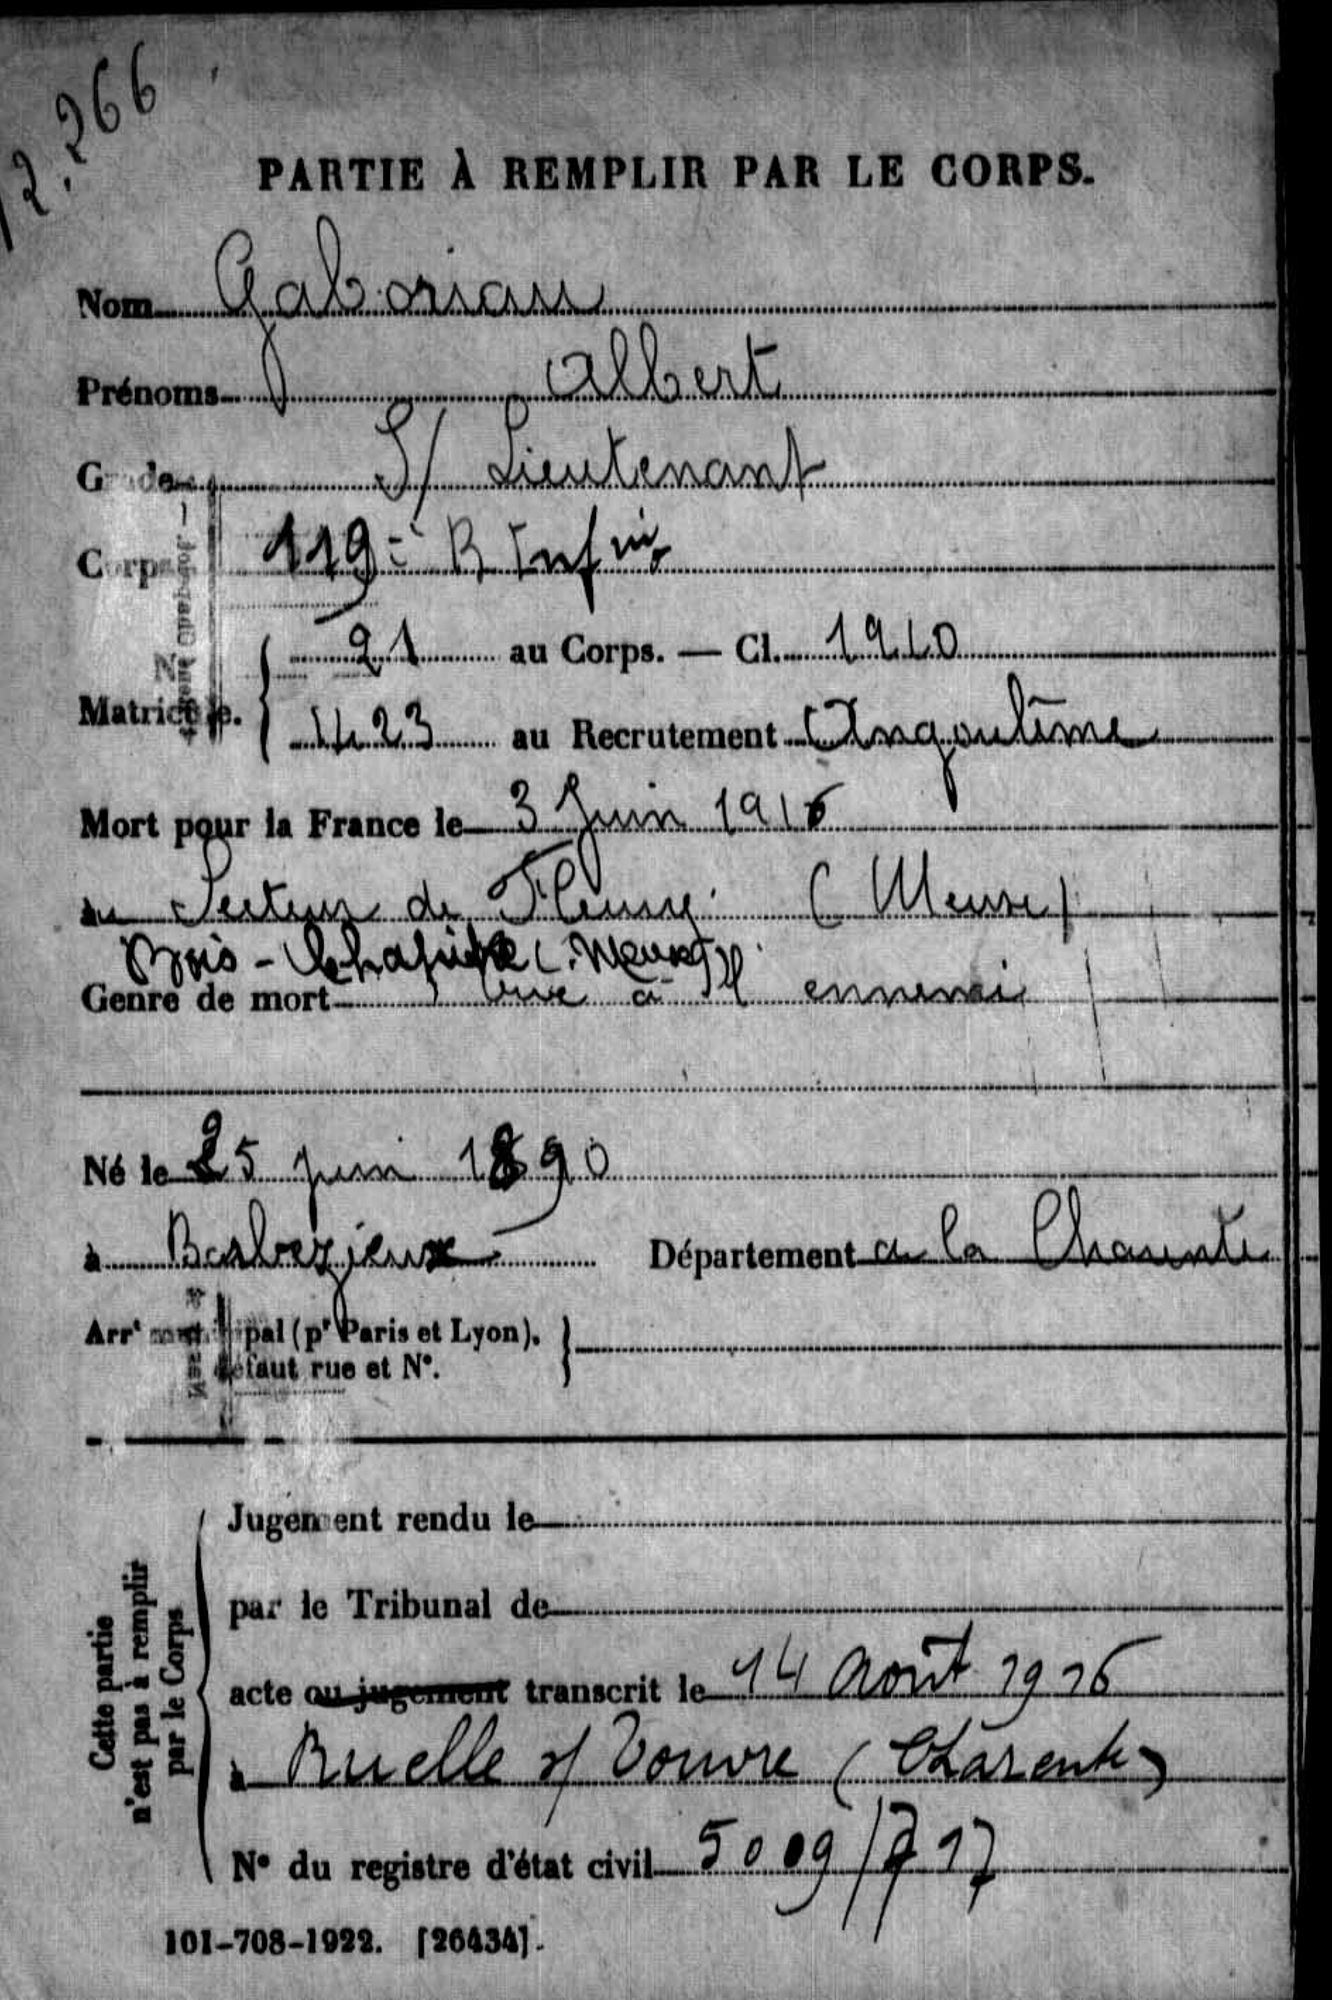 12.266
PARTIE À REMPLIR PAR LE CORPS.
Nom Gaboriau
Prénoms Albert
Grade S/ Lieutenant
Corps 119e R Infie
Matricule. { 21 au Corps. — Cl. 1910
1423 au Recrutement Angoulême
Mort pour la France le 3 Juin 1916
au Secteur de Fleury (Meuse)
Bois - Chapitre (Meuse)
Genre de mort tué à l' ennemi
Né le 25 juin 1890
à Barbezieux Département de la Charente
Arrt municipal (pr Paris et Lyon),
défaut rue et N°.
Cette partie
n'est pas à remplir
par le Corps
Jugement rendu le
par le Tribunal de
acte ou jugement transcrit le 14 Août 1916
à Ruelle s/ Touvre (Charente)
N° du registre d'état civil 5009/717
101-708-1922. [26434].